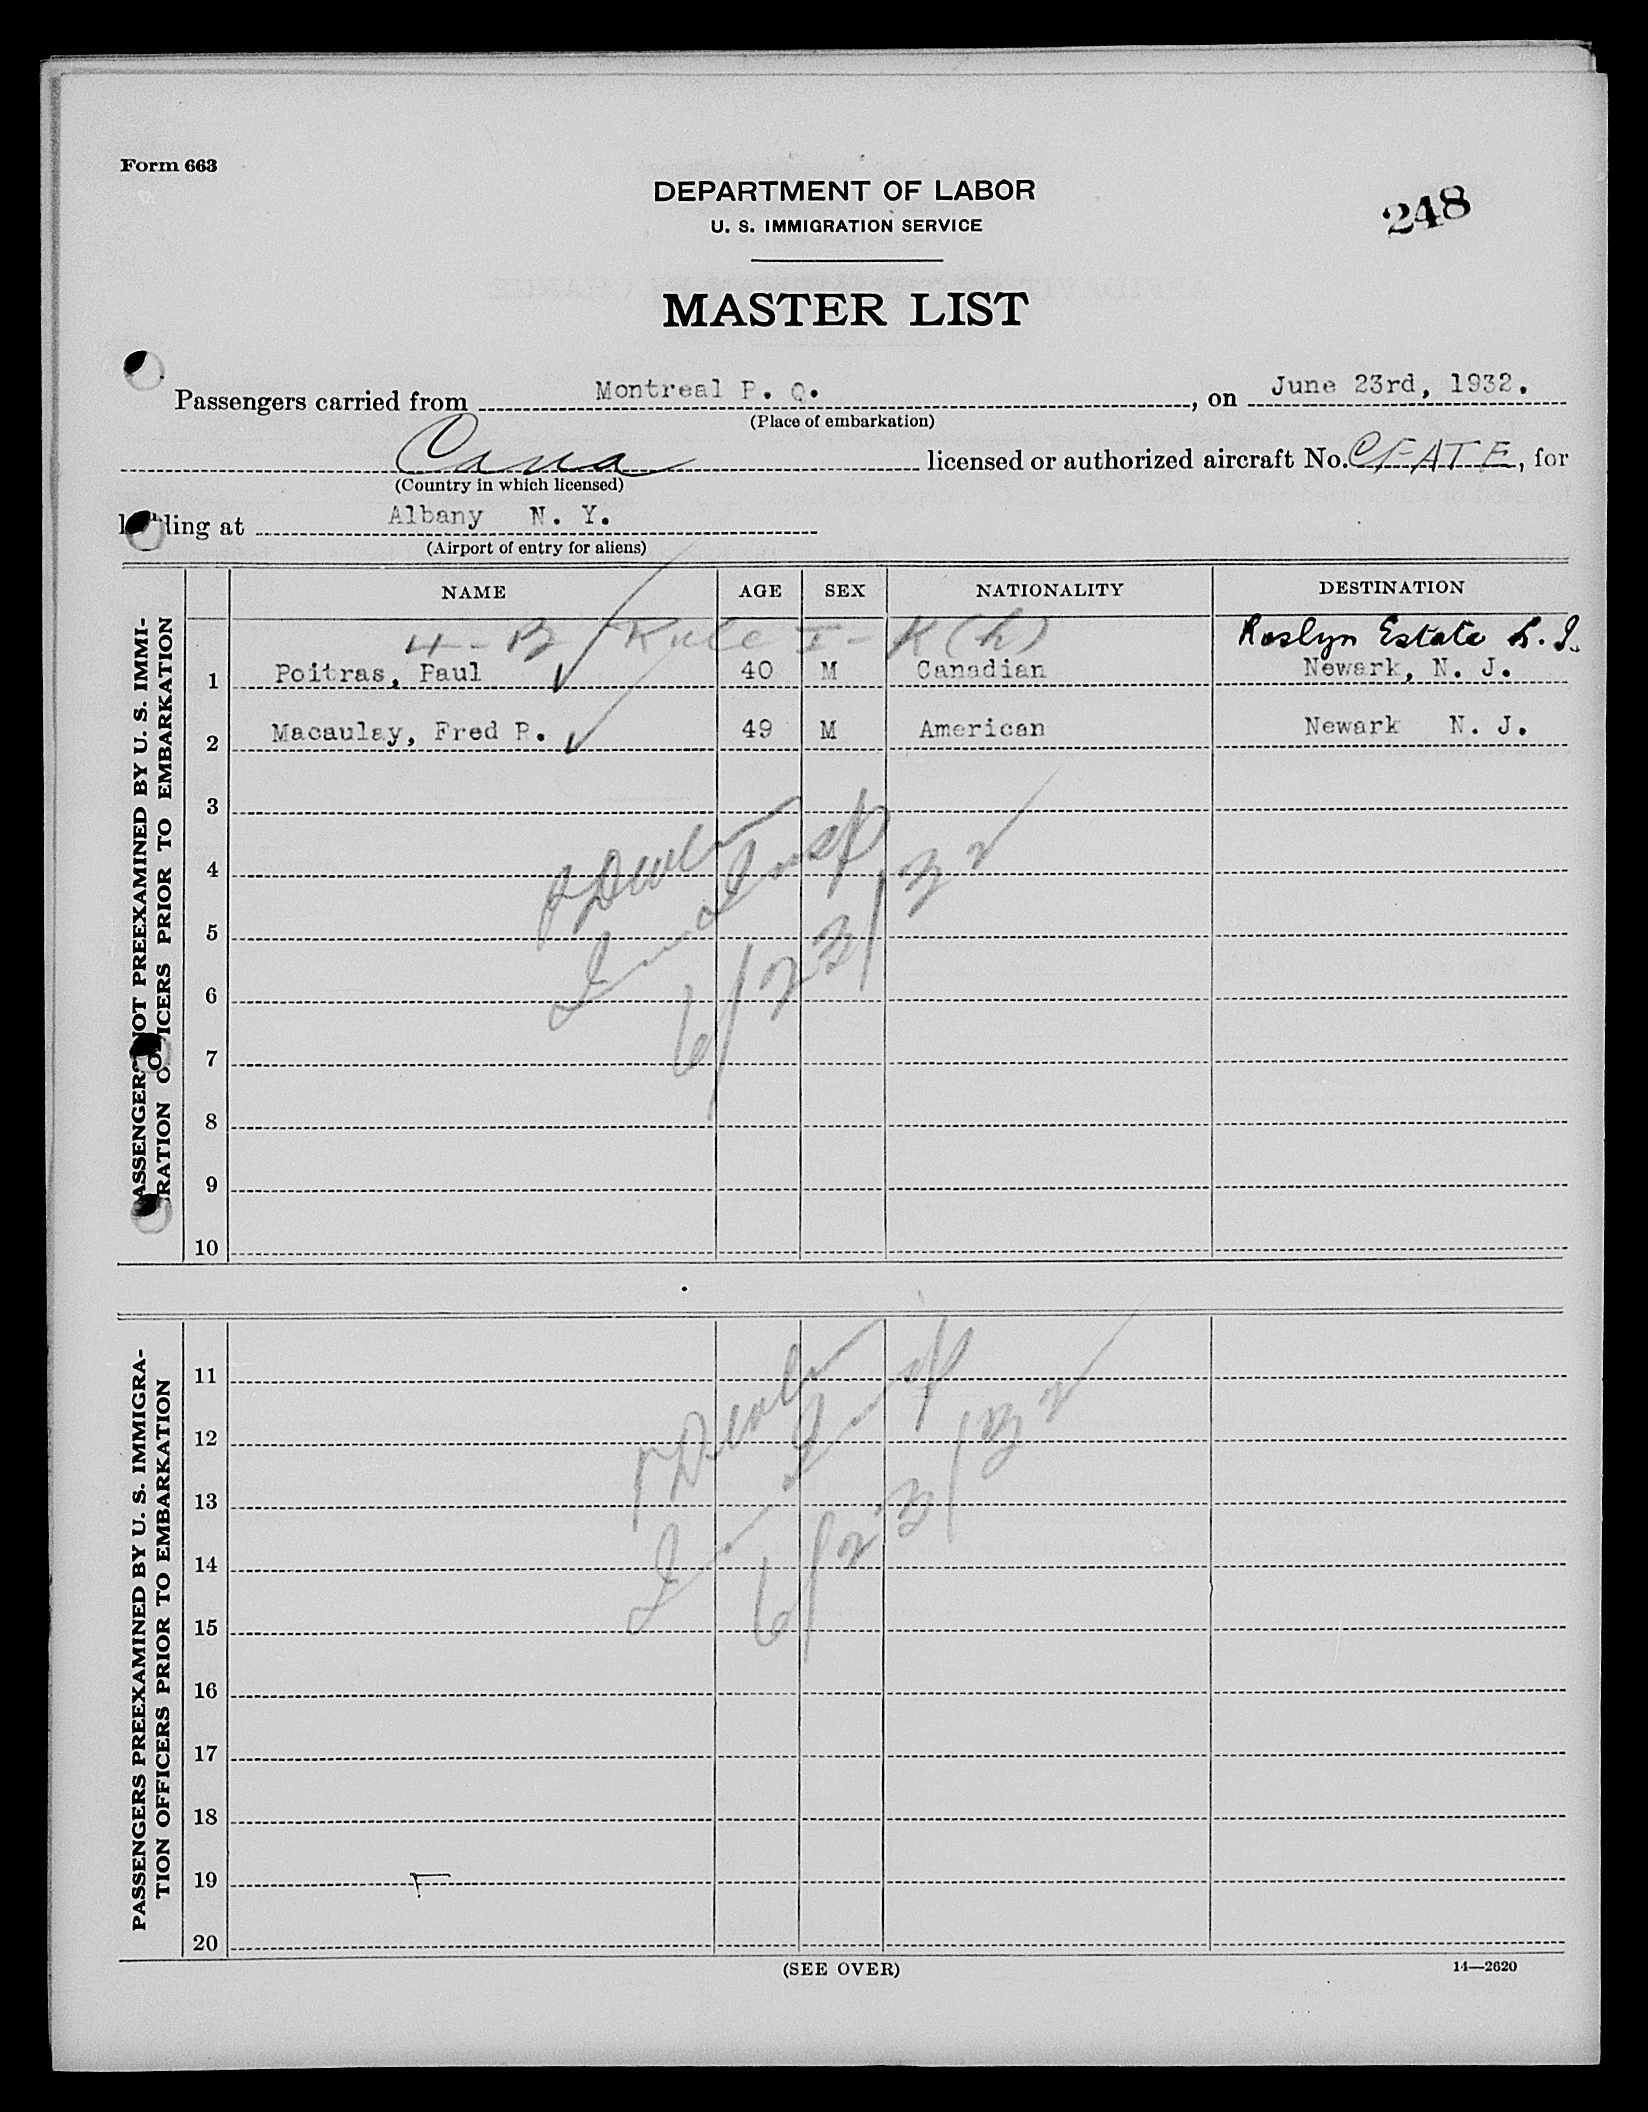 Form 663
DEPARTMENT OF LABOR
U. S. IMMIGRATION SERVICE
248
MASTER LIST
Passengers carried from Montreal P. Q., on June 23rd, 1932.
(Place of embarkation)
Cana licensed or authorized aircraft No. CFATE, for
(Country in which licensed)
ding at Albany N. Y.
(Airport of entry for aliens)
NAME AGE SEX NATIONALITY DESTINATION
4-B Rule I-K(h) Roslyn Estate L. I.
1 Poitras, Paul 40 M Canadian Newark, N. J.
2 Macaulay, Fred R. 49 M American Newark N. J.
3
4
5
6
7
8
9
10
Insp
6/23/32
PASSENGERS NOT PREEXAMINED BY U. S. IMMI-
RATION OFFICERS PRIOR TO EMBARKATION
11
12
13
14
15
16
17
18
19
20
Insp
6/23/32
PASSENGERS PREEXAMINED BY U. S. IMMIGRA-
TION OFFICERS PRIOR TO EMBARKATION
(SEE OVER)
14—2620